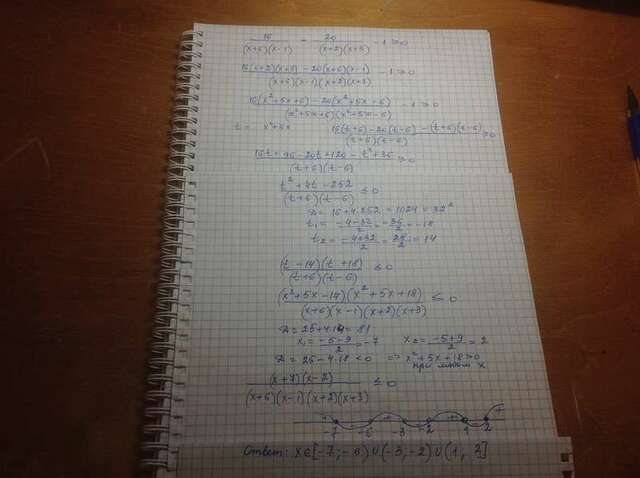 16/((x+6)(x-1)) - 20/((x+2)(x+3)) - 1 ≥ 0
(16(x+2)(x+3) - 20(x+6)(x-1))/((x+6)(x-1)(x+2)(x+3)) - 1 ≥ 0
(16(x²+5x+6) - 20(x²+5x-6))/((x²+5x+6)(x²+5x-6)) - 1 ≥ 0
t = x²+5x (16(t+6) - 20(t-6) - (t+6)(t-6))/((t+6)(t-6)) ≥ 0
(16t+96-20t+120-t²+36)/((t+6)(t-6)) ≥ 0
(t²+4t-252)/((t+6)(t-6)) ≤ 0
D = 16+4·252 = 1024 = 32²
t₁ = (-4-32)/2 = -36/2 = -18
t₂ = (-4+32)/2 = 28/2 = 14
((t-14)(t+18))/((t+6)(t-6)) ≤ 0
((x²+5x-14)(x²+5x+18))/((x+6)(x-1)(x+2)(x+3)) ≤ 0
D = 25+4·14 = 81
x₁ = (-5-9)/2 = -7 x₂ = (-5+9)/2 = 2
D = 25-4·18 < 0 ⇒ x²+5x+18 > 0
при любом x
((x+7)(x-2))/((x+6)(x-1)(x+2)(x+3)) ≤ 0
+ - + - + - +
-7 -6 -3 -2 1 2
Ответ: x∈[-7; -6)∪(-3; -2)∪(1; 3]